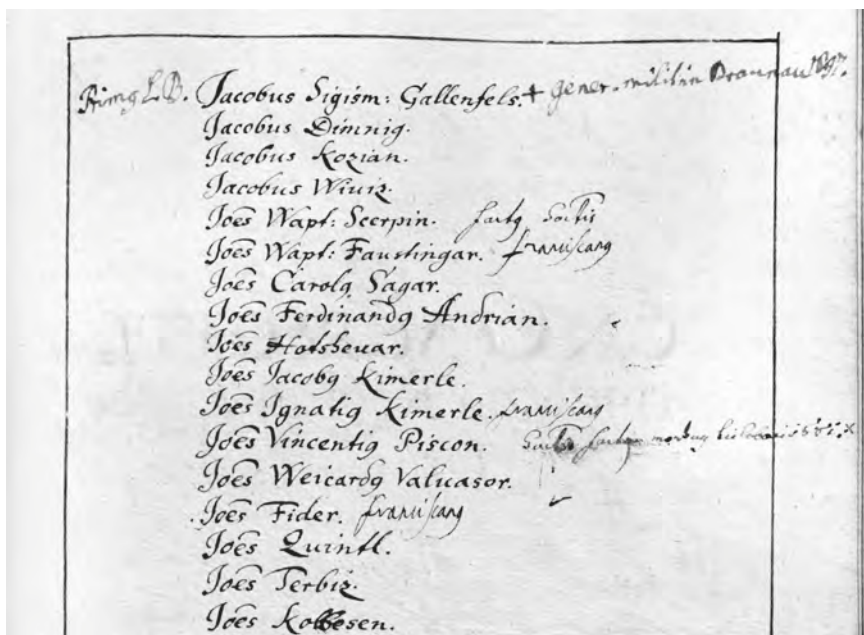 Primq L. B. Jacobus Sigism: Gallenfels. + Gener. militiæ Braunau
Jacobus Dimnig.
Jacobus Kozian.
Jacobus Wiviz.
Joēs Wapt: Scerpin. factq Soctis
Joēs Wapt: Faustingar. franciscanq
Joēs Carolq Sagar.
Joēs Ferdinandq Andrian.
Joēs Hotshevar.
Joēs Jacobq Kimerle.
Joēs Ignatiq Kimerle. franciscanq
Joēs Vincentiq Piscon.
Joēs Weicardq Valvasor.
Joēs Fider. franciscanq
Joēs Quintl.
Joēs Terbiz.
Joēs Kobesen.